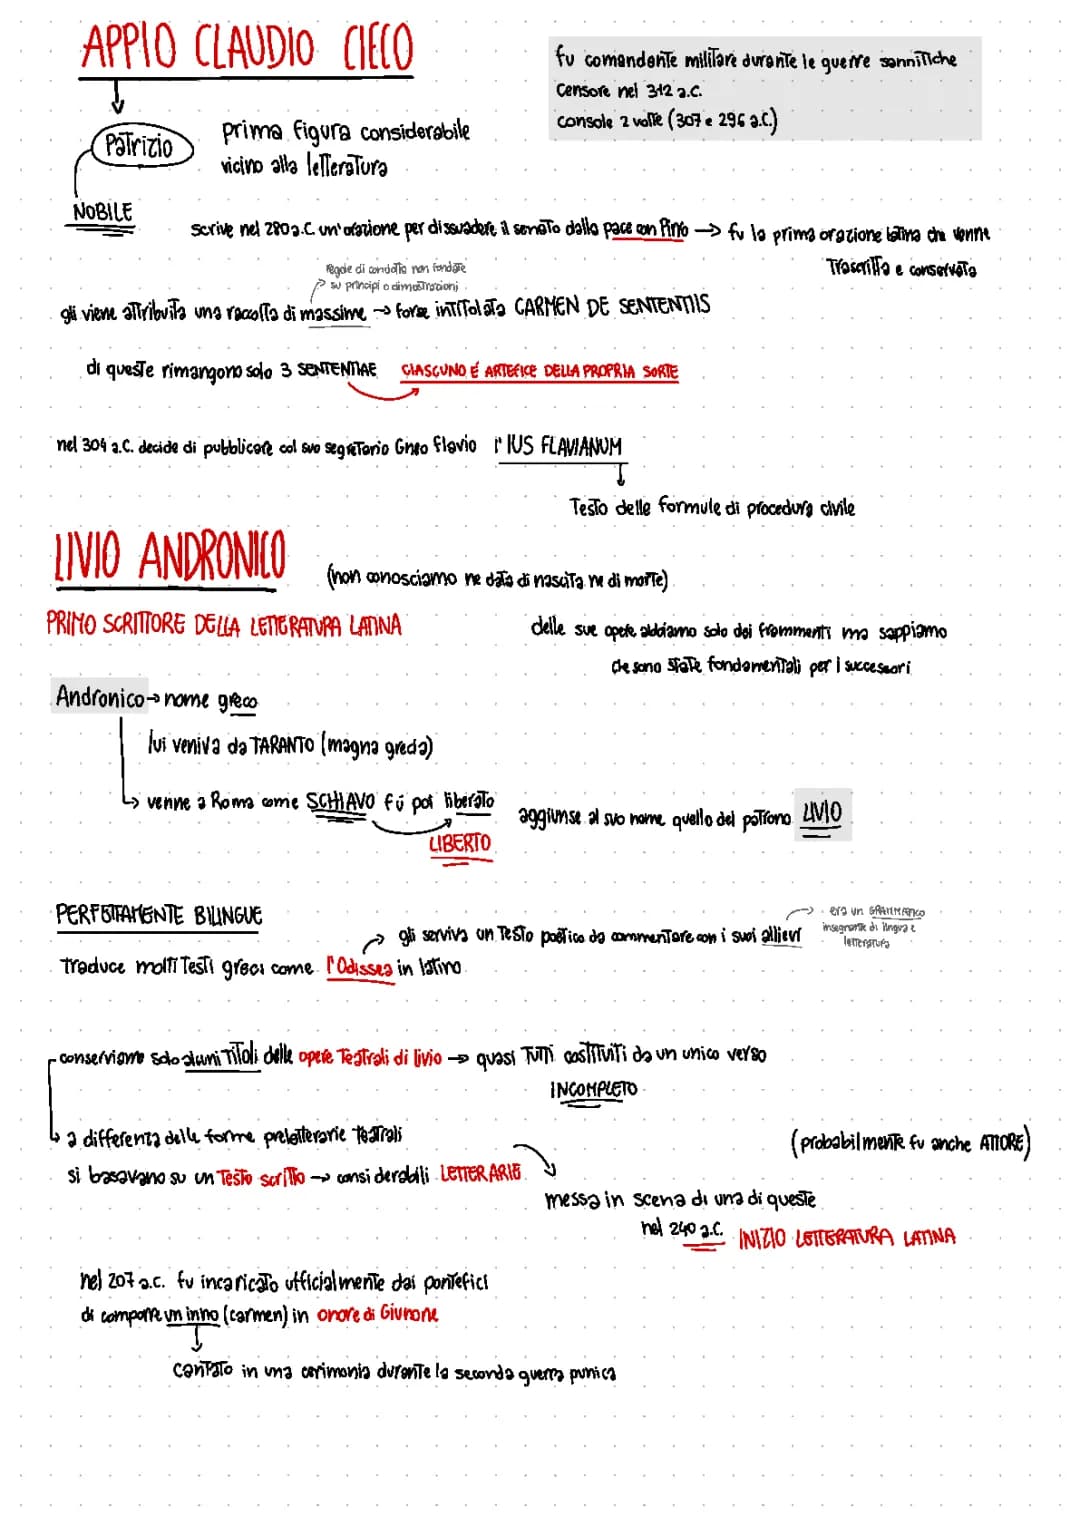 APPIO CLAUDIO CIECO
fu comandante militare durante le guerre sannitiche
censore nel 312 a.C.
console 2 volte (307 e 296 a.C.)
Patrizio
prima figura considerabile
vicino alla letteratura
NOBILE
scrive nel 280 a.C. un'orazione per dissuadere il senato dalla pace con Pirro → fu la prima orazione latina che venne
trascritta e conservata
regole di condotta non fondate
su principi o dimostrazioni
gli viene attribuita una raccolta di massime → forse intitolata CARMEN DE SENTENTIIS
di queste rimangono solo 3 SENTENTIAE CIASCUNO É ARTEFICE DELLA PROPRIA SORTE
nel 304 a.C. decide di pubblicare col suo segretario Gneo Flavio l'IUS FLAVIANUM
Testo delle formule di procedura civile
LIVIO ANDRONICO
(non conosciamo ne data di nascita ne di morte)
PRIMO SCRITTORE DELLA LETTERATURA LATINA
delle sue opere abbiamo solo dei frammenti ma sappiamo
che sono state fondamentali per i successori
Andronico → nome greco
lui veniva da TARANTO (magna grecia)
venne a Roma come SCHIAVO fú poi liberato
LIBERTO
aggiunse al suo nome quello del patrono LIVIO
PERFETTAMENTE BILINGUE
era un GRAMMATICO
insegnante di lingua e
letteratura
gli serviva un testo poetico da commentare con i suoi allievi
traduce molti testi greci come l'Odissea in latino
conserviamo solo alcuni titoli delle opere teatrali di livio → quasi tutti costituiti da un unico verso
INCOMPLETO
a differenza delle forme preletterarie teatrali
si basavano su un testo scritto → considerabili LETTERARIE
(probabilmente fu anche ATTORE)
messa in scena di una di queste
nel 240 a.C. INIZIO LETTERATURA LATINA
nel 207 a.C. fu incaricato ufficialmente dai pontefici
di comporre un inno (carmen) in onore di Giunone
cantato in una cerimonia durante la seconda guerra punica